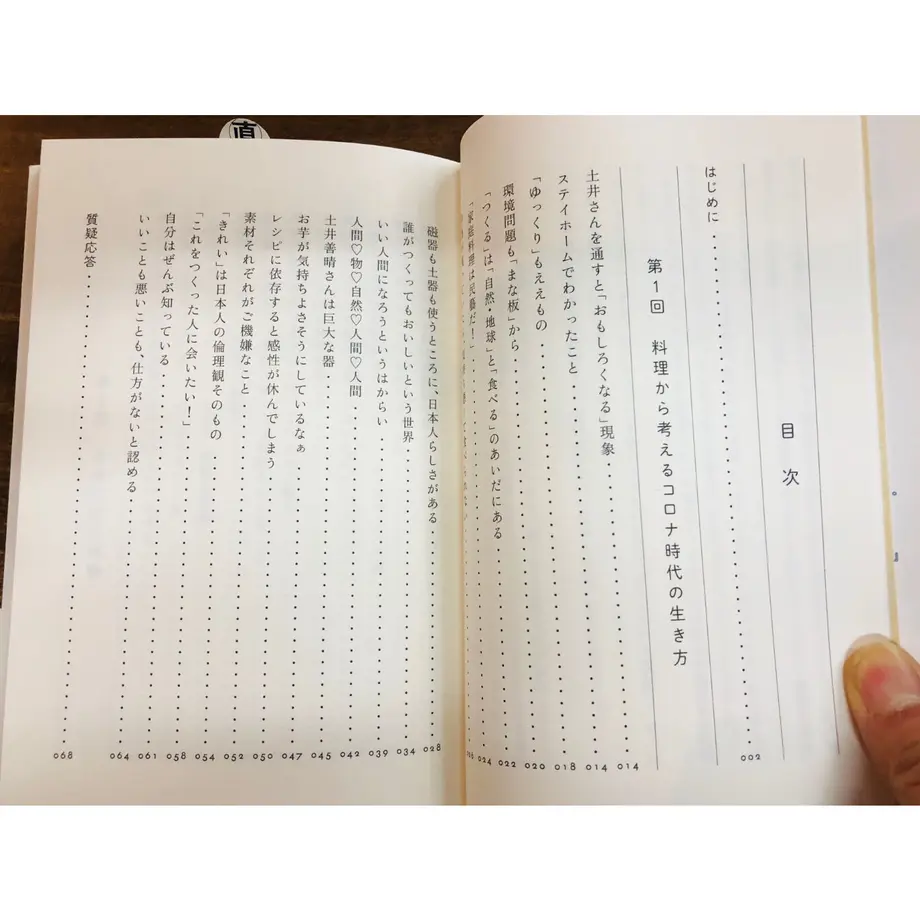 目次
はじめに 002
第1回 料理から考えるコロナ時代の生き方
土井さんを通すと「おもしろくなる」現象 014
ステイホームでわかったこと 014
「ゆっくり」もええもの 018
環境問題も「まな板」から 020
「つくる」は「自然・地球」と「食べる」のあいだにある 022
「家庭料理は民藝だ!」 024
磁器も土器も使うところに、日本人らしさがある 028
誰がつくってもおいしいという世界 034
いい人間になろうというはからい 039
人間♡物♡自然♡人間♡人間 042
土井善晴さんは巨大な器 045
お芋が気持ちよさそうにしているなぁ 047
レシピに依存すると感性が休んでしまう 050
素材それぞれがご機嫌なこと 052
「きれい」は日本人の倫理観そのもの 054
「これをつくった人に会いたい!」 058
自分はぜんぶ知っている 061
いいことも悪いことも、仕方がないと認める 064
質疑応答 068